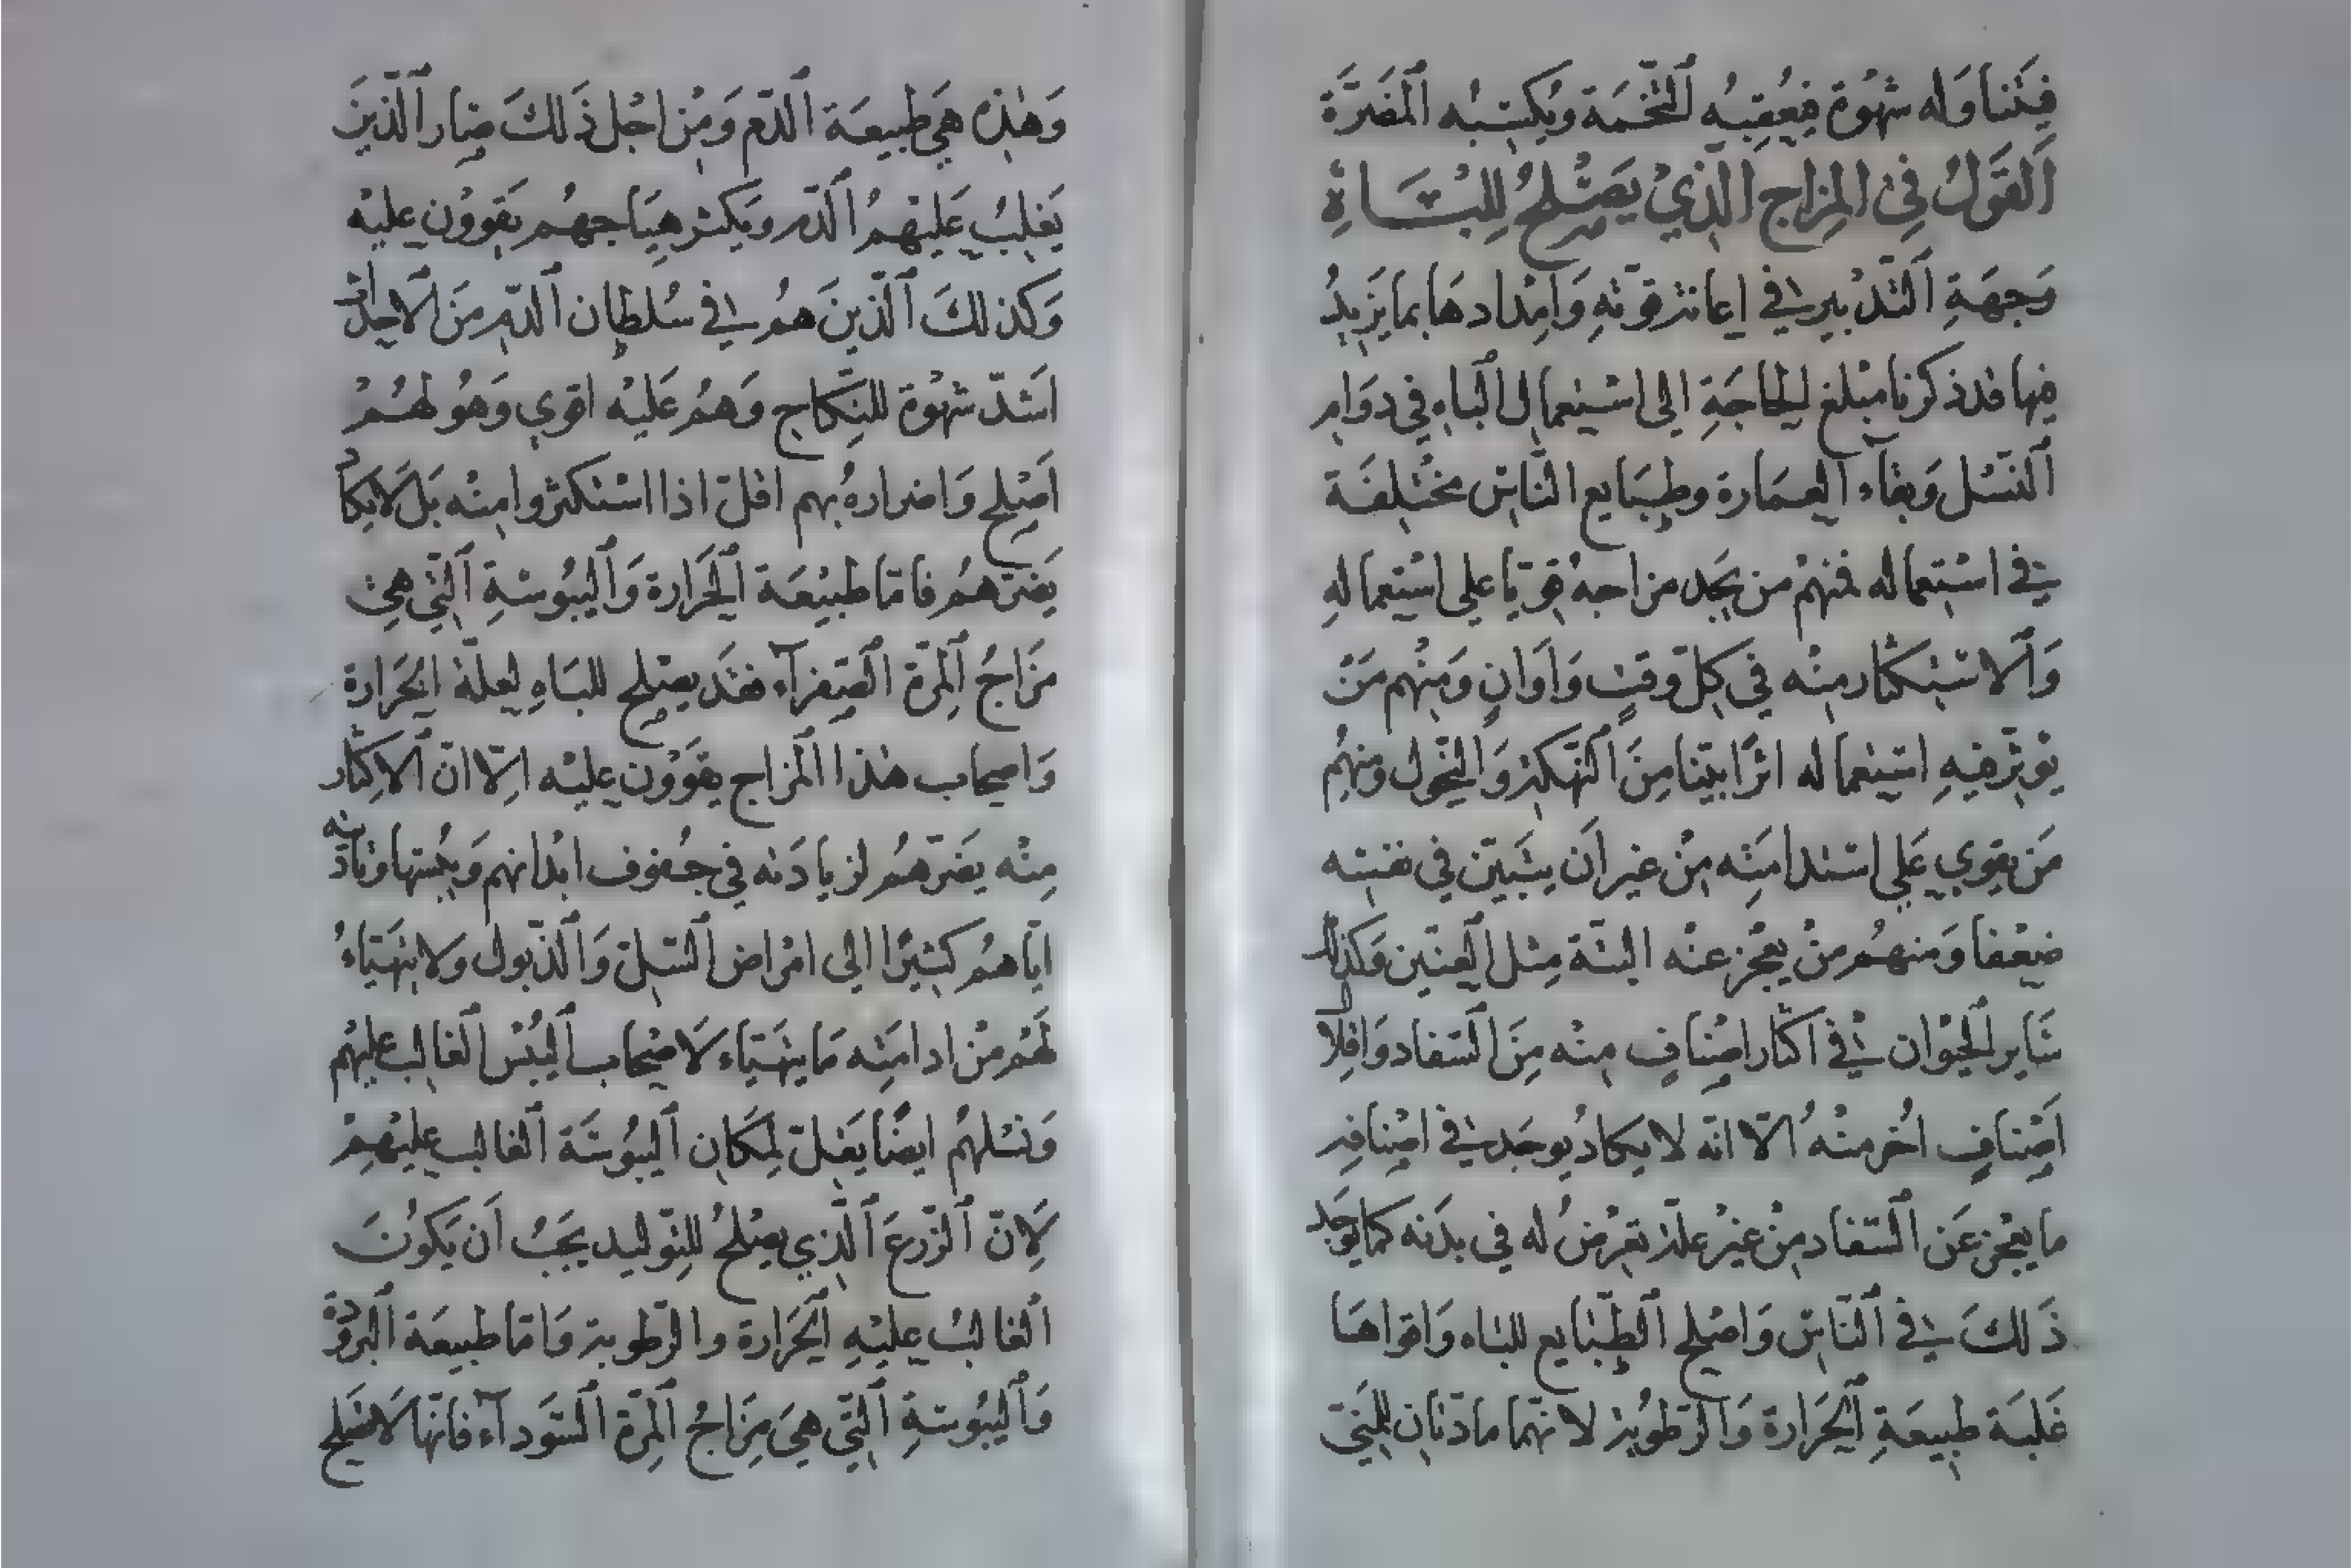 فيتناوله شهوة فيعقبه التّخمة ويكسبه المضرّة
القول في المزاج الذي يصلح للباءة
وجهة التدبير في إعانة قوته وامدادها بما يزيد
فيها قد ذكرنا مبلغ الحاجة الى استعمال الباه في دوام
النسل وبقاء العمارة وطبايع الناس مختلفة
في استعماله فمنهم من يجد مزاجه قويّا على استعماله
والاستكثار منه في كلّ وقت وأوان ومنهم من
يؤثر فيه استعماله اثرا بيّنا من التهكّر والنحول ومنهم
من يقوى على استدامته من غير أن يتبيّن في نفسه
ضعفا ومنهم من يعجز عنه البتّة مثل العنّين وكذلك
ساير الحيوان في اكثار اصناف منه من السفاد واقلال
أصناف اخر منه الّا انّه لا يكاد يوجد في اصنافه
ما يعجز عن السّفاد من غير علّة تعرض له في بدنه كما يوجد
ذلك في النّاس واصلح الطّبايع للباه واقواها
غلبة طبيعة الحرارة والرّطوبة لانّهما مادّتان للمنيّ
وهذه هي طبيعة الدّم ومن اجل ذلك صار الّذين
يغلب عليهم الدّم ويكثر هياجهم يقوون عليه
وكذلك الّذين هم في سلطان الدّم من الاحداث
اشدّ شهوة للنّكاح وهم عليه اقوى وهو لهم
أصلح واضراره بهم اقلّ اذا استكثروا منه بل لا يكاد
يضرّهم فامّا طبيعة الحرارة واليبوسة الّتي هي
مزاج المرّة الصّفرآء فقد يصلح للباه لعلّة الحرارة
واصحاب هذا المزاج يقوون عليه الّا انّ الاكثار
منه يضرّهم لزيادته في جفوف ابدانهم ويبسها وتأديته
ايّاهم كثيرا الى امراض السّلّ والذّبول ولا يتهيّاء
لهم من ادامته ما يتهيّاء لاصحاب اليبس الغالب عليهم
ونسلهم ايضا يقلّ لمكان اليبوسة الغالب عليهم
لانّ الزّرع الّذي يصلح للتّوليد يجب أن يكون
الغالب عليه الحرارة والرّطوبة وامّا طبيعة البرودة
واليبوسة الّتي هي مزاج المرّة السّودآء فانّها لا تصلح